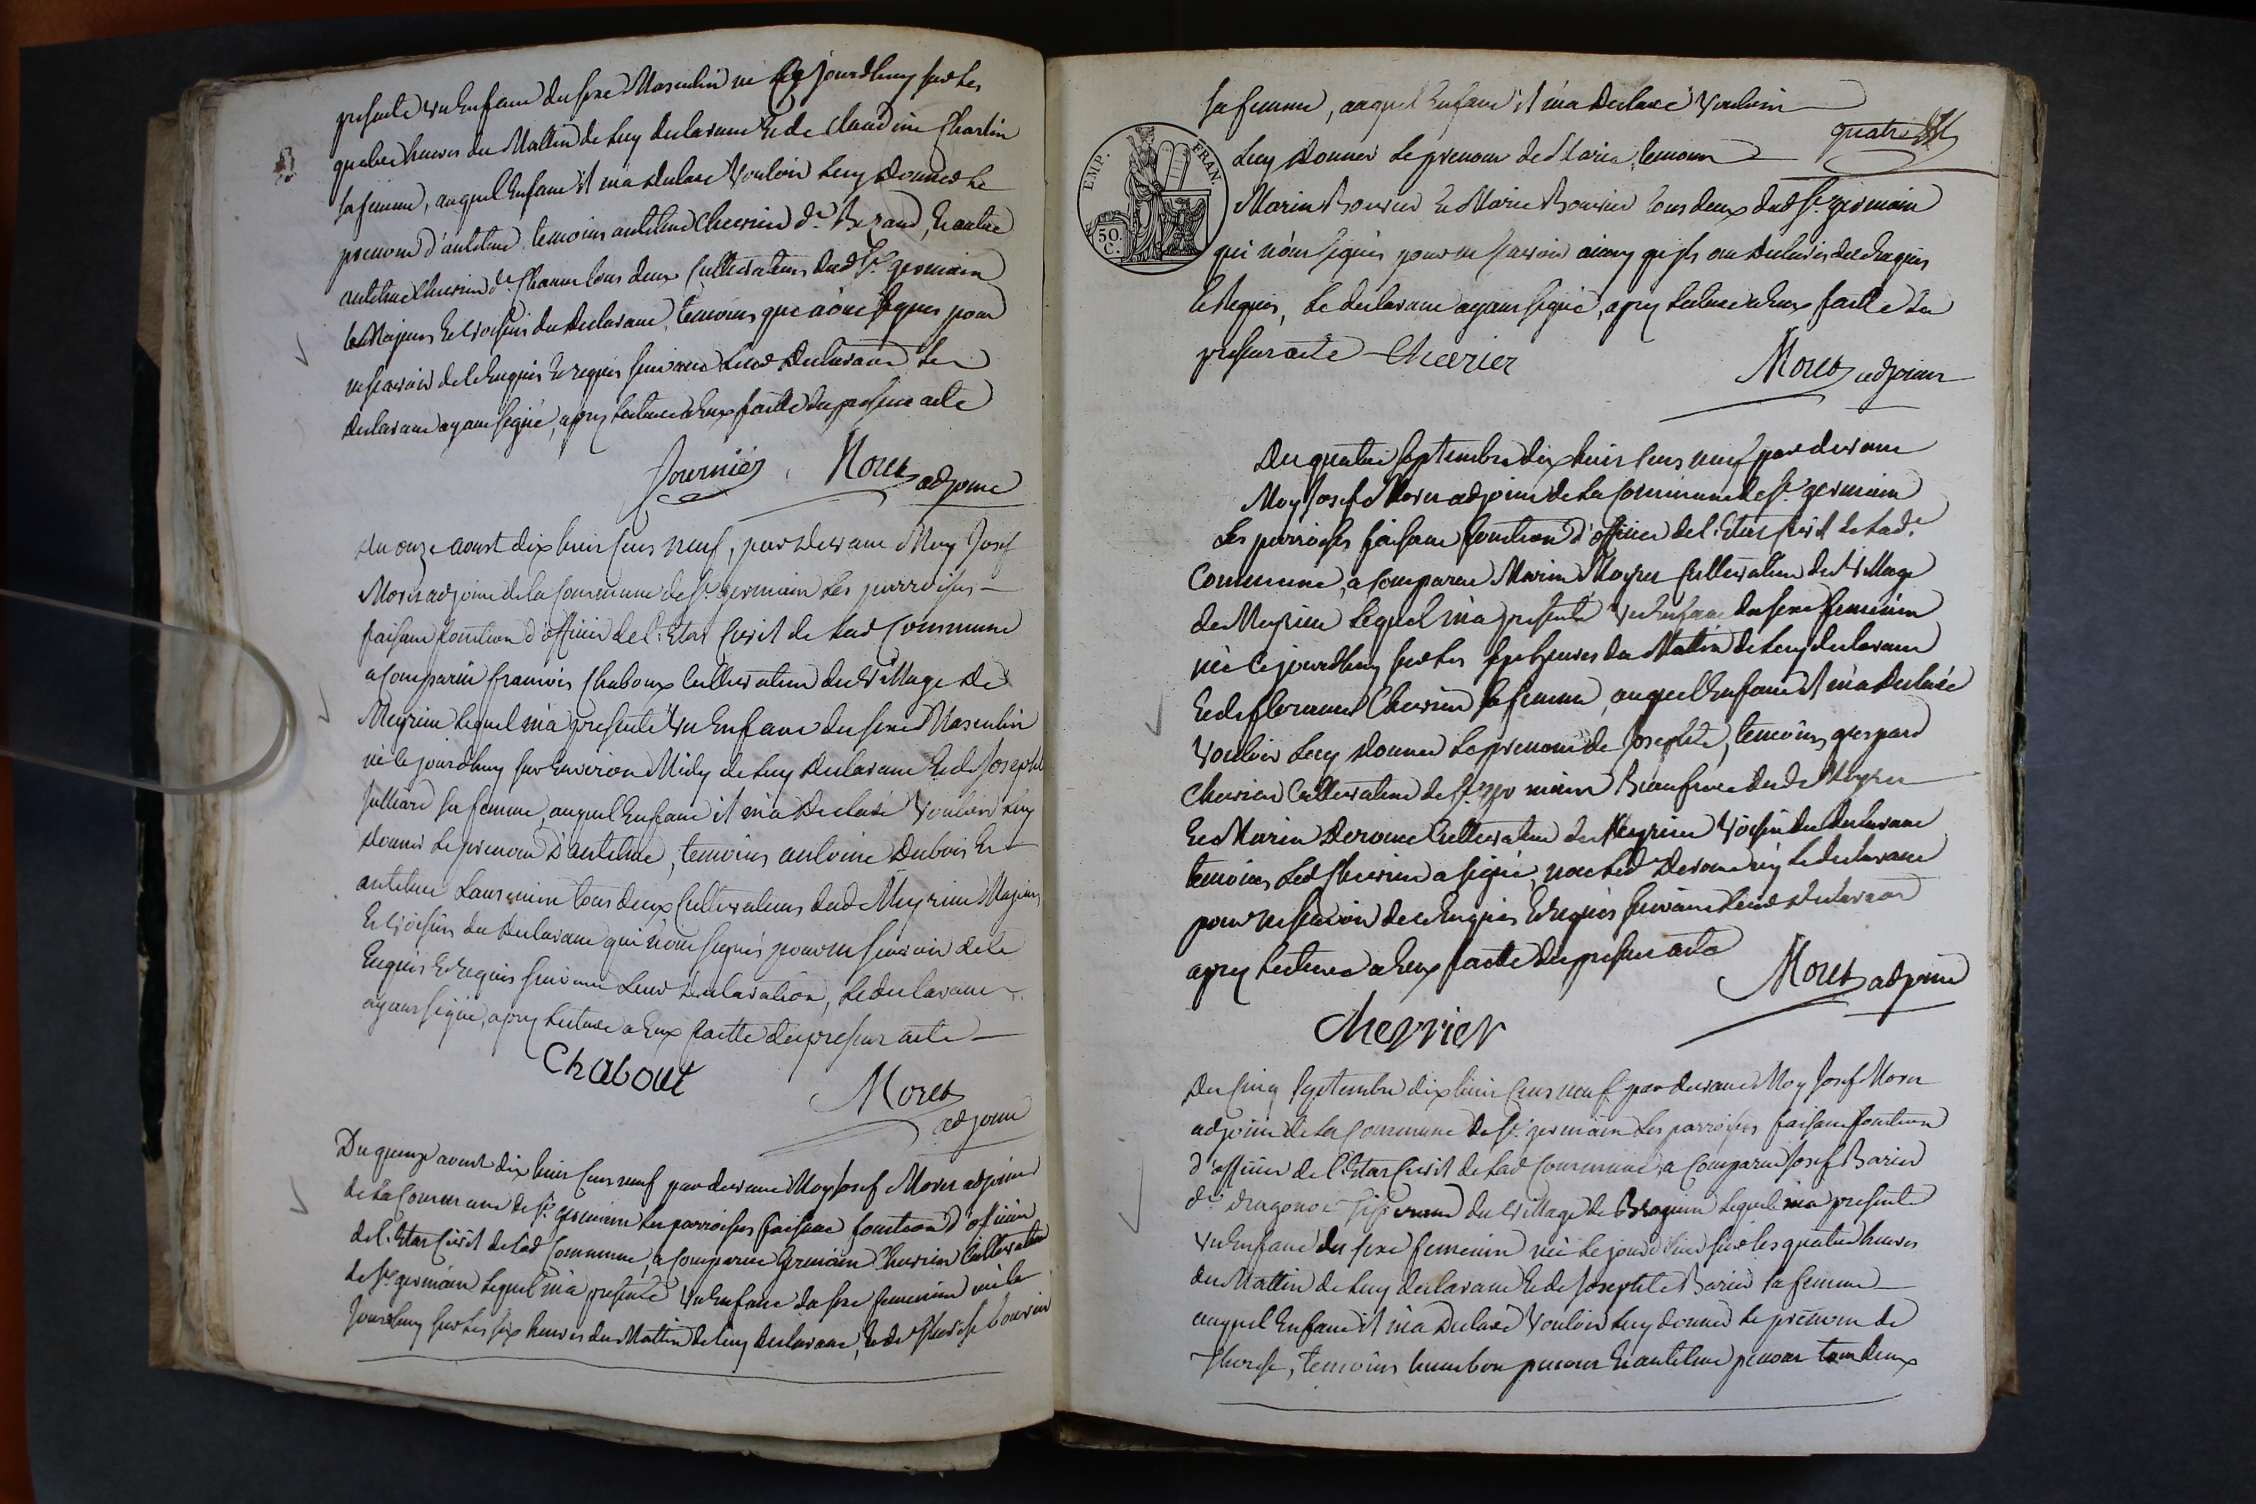 presente un Enfant du sexe Masculin né Ce jourdhuy sur les
quatre heures du Mattin de luy declarant Et de Claudine Charlin
sa femme, auquel Enfant il ma declaré Vouloir luy donner le
prenom d'antelme, temoins antelme Chevrier dt. Beraud, Et autre
antelme Chevrier dt. tous deux Cultivateurs dud St. germain
Majeurs Et voisins du declarant, temoins que nont signes pour
ne scavoir de ce Enquis Et requis suivant leur declaration le
declarant ayant signé, apres lecture a Eux faitte du present acte
fournier Moret adjoint
du onze aoust dix huit cens neuf, par devant Moy Josef
Moret adjoint de la Commune de St. germain les parroisses
faisant fonction d'officier de l'Etat Civil de lad Commune
a Comparu francois Chaboux Cultivateur du Village de
Meyrieu lequel m'a presenté un Enfant du sexe Masculin
né le jourdhuy sur Environ Midy de luy declarant Et de Josephte
Julliard sa femme, auquel Enfant il m'a declaré Vouloir luy
donner le prenom d'antelme, temoins antoine Dubois Et
antelme tous deux Cultivateurs dud Meyrieu Majeurs
Et voisins du declarant qui n'ont signés pour ne scavoir de ce
Enquis Et requis suivant leur declaration, le declarant
ayant signé, apres lecture a Eux faitte du present acte
Chabout
Moret
adjoint
Du quinze aoust dix huit cens neuf par devant Moy Josef Moret adjoint
de la Commune de St. germain les parroisses faisant fonction d'officier
de l'Etat Civil de lad Commune, a Comparu germain Chevrier Cultivateur
de St. germain lequel m'a presenté un Enfant du sexe femenin né le
jourdhuy sur les six heures du Mattin de luy declarant, Et de therese bouvier
sa femme, auquel Enfant il m'a declaré Vouloir
quatre
luy donner le prenom de Marie, temoins
EMP. FRAN.
50
C.
Marin Bouvier Et Marie Bouvier tous deux dud St. germain
qui n'ont signés pour ne scavoir ainsy qu'ils ont declarés de ce Enquis
Et Requis, le declarant ayant signé, apres lecture a Eux faitte du
present acte Chevrier
Moret adjoint
Du quatre septembre dix huit cens neuf par devant
Moy Josef Moret adjoint de la Commune de St. germain
les parroisses faisant fonction d'officier de l'Etat Civil de lade.
Commune, a Comparu Marin Cultivateur du Village
de Meyrieu lequel m'a presenté un Enfant du sexe femenin
née Ce jourdhuy sur les sept heures du Mattin de luy declarant
Et de Chevrier sa femme, auquel Enfant il m'a declaré
Vouloir luy donner le prenom de Josephte, temoins gaspard
Chevrier Cultivateur de St. germain Beaufrere dud
Et Marin Cultivateur de Meyrieu Voisin du declarant
temoins led Chevrier a signé, non led ny le declarant
pour ne scavoir de ce Enquis Et requis suivant leur declaration
apres lecture a Eux faitte du present acte
Moret adjoint
Chevrier
Du Cinq septembre dix huit cens neuf par devant Moy Josef Moret
adjoint de la Commune de St. germain les parroisses faisant fonction
d'officier de l'Etat Civil de lad Commune, a Comparu Josef Barier
dt. dragonot du Village de lequel m'a presenté
un Enfant du sexe femenin née le jourdhuy sur les quatre heures
du Mattin de luy declarant Et de Josephte Barier sa femme
auquel Enfant il m'a declaré Vouloir luy donner le prenom de
therese, temoins Et antelme tous deux